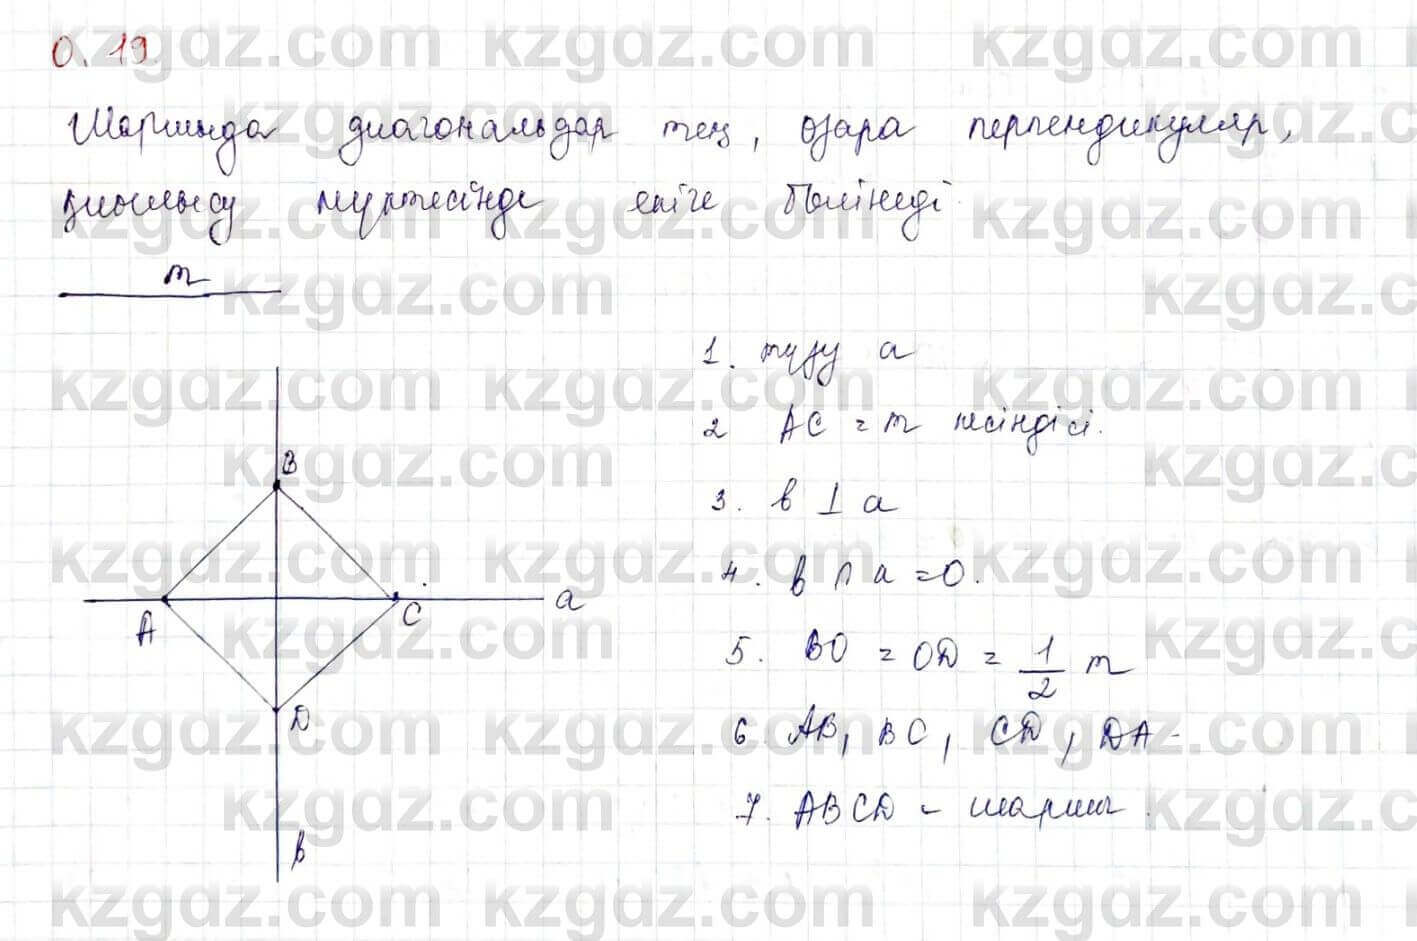 0.19.
Шаршыда диагональдар тең, өзара перпендикуляр,
қиылысу нүктесінде екіге бөлінеді.
m
1. түзу a
2 AC = m кесіндісі.
3. b ⊥ a
4. b ∩ a = O.
5. BO = OD = 1/2 m
6. AB, BC, CD, DA
7. ABCD - шаршы.
B
A
C
a
D
b
kzgdz.com